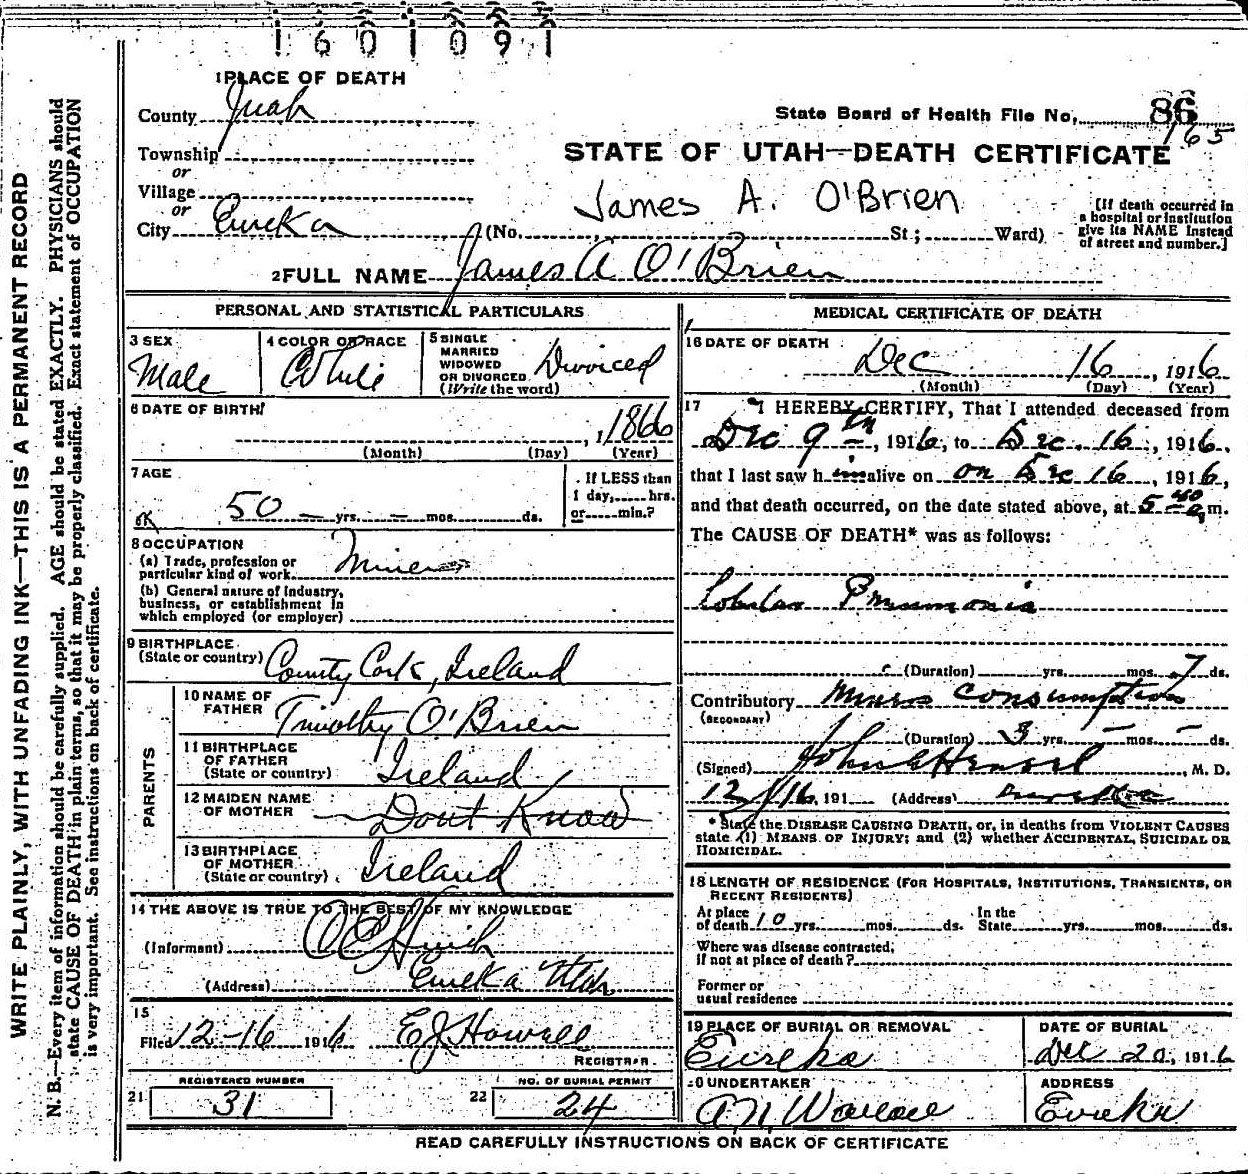 1601091
1 PLACE OF DEATH
County Juab
State Board of Health File No. 86
165
Township
or
STATE OF UTAH—DEATH CERTIFICATE
Village
or
James A. O'Brien
City Eureka (No. St; Ward)
[If death occurred in a hospital or institution give its NAME instead of street and number.]
2 FULL NAME James A O'Brien
PERSONAL AND STATISTICAL PARTICULARS
3 SEX
Male
4 COLOR OR RACE
White
5 SINGLE
MARRIED
WIDOWED
OR DIVORCED
(Write the word)
Divorced
6 DATE OF BIRTH
, 1 1866
(Month) (Day) (Year)
7 AGE
If LESS than
1 day, hrs.
or min.?
OK 50 – yrs. – mos. ds.
8 OCCUPATION
(a) Trade, profession or
particular kind of work Miner
(b) General nature of industry,
business, or establishment in
which employed (or employer)
9 BIRTHPLACE
(State or country) County Cork, Ireland
PARENTS
10 NAME OF
FATHER Timothy O'Brien
11 BIRTHPLACE
OF FATHER
(State or country) Ireland
12 MAIDEN NAME
OF MOTHER Dont Know
13 BIRTHPLACE
OF MOTHER
(State or country) Ireland
14 THE ABOVE IS TRUE TO THE BEST OF MY KNOWLEDGE
(Informant)
(Address) Eureka Utah
15
Filed 12-16 1916 E J Howell
REGISTRAR
21 REGISTERED NUMBER
31
22 NO. OF BURIAL PERMIT
24
MEDICAL CERTIFICATE OF DEATH
16 DATE OF DEATH
Dec 16, 1916
(Month) (Day) (Year)
17 I HEREBY CERTIFY, That I attended deceased from
Dec 9th, 1916, to Dec. 16, 1916,
that I last saw him alive on on Dec 16, 1916,
and that death occurred, on the date stated above, at 5 40 a m.
The CAUSE OF DEATH* was as follows:
Lobular Pneumonia
(Duration) yrs. mos. 7 ds.
Contributory Miners consumption
(SECONDARY)
(Duration) 3 yrs. – mos. – ds.
(Signed) John Hensel, M. D.
12/16, 191 (Address) Eureka
* State the DISEASE CAUSING DEATH, or, in deaths from VIOLENT CAUSES
state (1) MEANS OF INJURY; and (2) whether ACCIDENTAL, SUICIDAL OR
HOMICIDAL.
18 LENGTH OF RESIDENCE (FOR HOSPITALS, INSTITUTIONS, TRANSIENTS, OR
RECENT RESIDENTS)
At place
of death 10 yrs. mos. ds.
In the
State yrs. mos. ds.
Where was disease contracted,
if not at place of death?
Former or
usual residence
19 PLACE OF BURIAL OR REMOVAL
Eureka
DATE OF BURIAL
Dec 20, 1916
20 UNDERTAKER
A. N. Wallace
ADDRESS
Eureka
READ CAREFULLY INSTRUCTIONS ON BACK OF CERTIFICATE
WRITE PLAINLY, WITH UNFADING INK—THIS IS A PERMANENT RECORD
N. B.—Every item of information should be carefully supplied. AGE should be stated EXACTLY. PHYSICIANS should
state CAUSE OF DEATH in plain terms, so that it may be properly classified. Exact statement of OCCUPATION
is very important. See instructions on back of certificate.